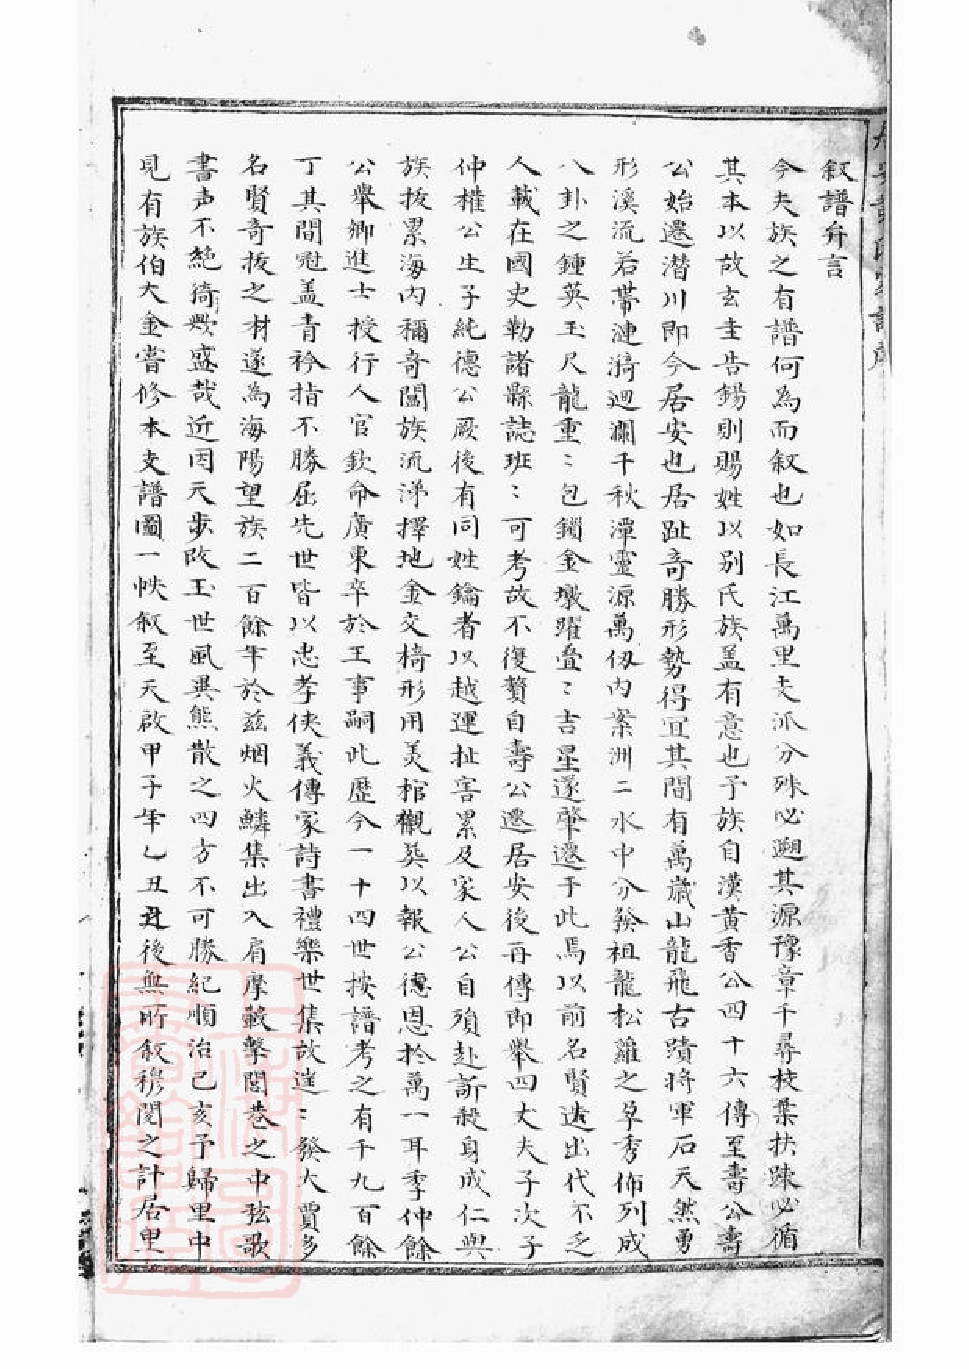 叙譜弁言
今夫族之有譜何為而叙也如長江萬里支派分殊必遡其源豫章千尋枝葉扶踈必循
其本以故玄圭告錫則賜姓以别氏族盖有意也予族自漢黄香公四十六傳至壽公壽
公始遷潜川即今居安也居趾奇勝形勢得宜其間有萬嵗山龍飛古蹟将軍石天然勇
形溪流若帶漣漪迴瀾千秋潭靈源萬仭内案洲二水中分發祖龍松蘿之阜秀佈列成
八卦之鍾英玉尺龍重〻包鎻金墩躍叠〻吉星遂肇遷于此焉以前名賢迭出代不乏
人載在國史勒諸縣誌班〻可考故不復贅自壽公遷居安後再傳即舉四丈夫子次子
仲權公生子純德公厥後有同姓鑰者以越運扯害累及家人公自殞赴訴殺身成仁與
族扳累海内稱奇闔族流涕擇地金交椅形用美棺槨葬以報公德恩扵萬一耳季仲餘
公舉鄉進士授行人官欽命廣東卒於王事嗣此歴今一十四世按譜考之有千九百餘
丁其間冠盖青衿指不勝屈先世皆以忠孝侠義傳家詩書禮樂世集故迬〻發大賈多
名賢奇拔之材遂為海陽望族二百餘年於兹烟火鱗集出入肩摩轂擊閭巷之中弦歌
書声不絶猗歟盛哉近因天步改玉世風異態散之四方不可勝紀順治己亥予歸里中
見有族伯大金嘗修本支譜圖一帙叙至天啟甲子年乙丑丑後無所叙穆閱之計居里